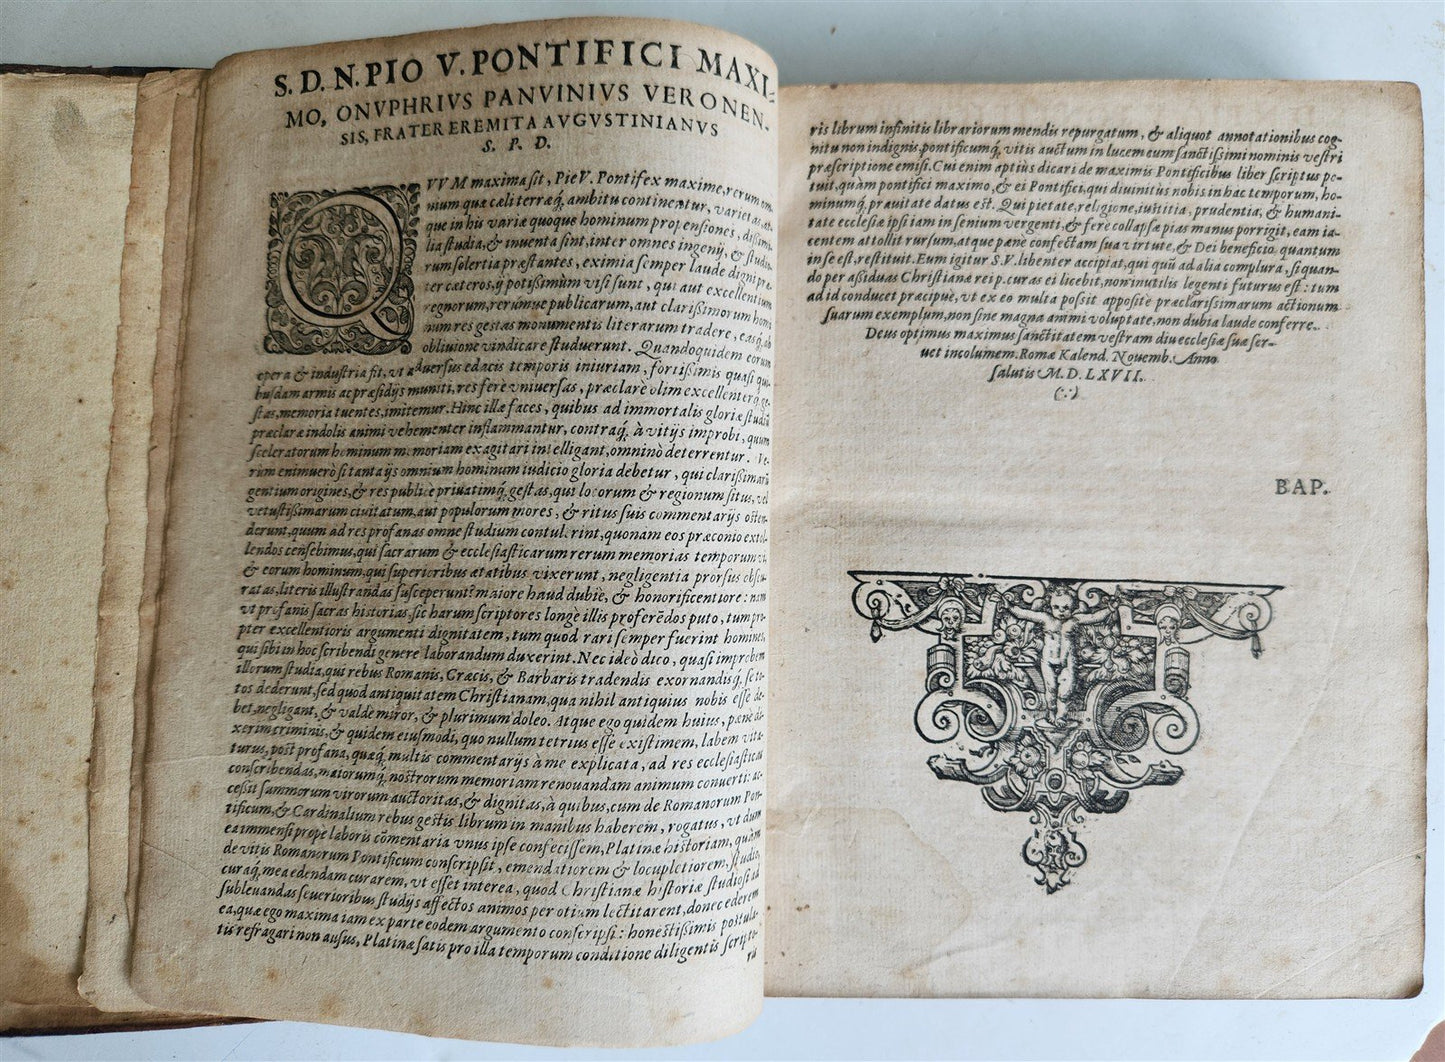 S. D. N. PIO V. PONTIFICI MAXI-
MO, ONVPHRIVS PANVINIVS VERONEN-
SIS, FRATER EREMITA AVGVSTINIANVS
S. P. D.
QVVM maxima sit, Pie V. Pontifex maxime, rerum om-
nium quæ cæli terræq́; ambitu continentur, varietas, at-
que in his variæ quoque hominum propensiones, dissimi-
lia studia, & inuenta sint, inter omnes ingenij, & studio-
rum solertia præstantes, eximia semper laude digni præ-
ter cæteros, ij potissimùm visi sunt, qui aut excellentium
regnorum, rerúmue publicarum, aut clarissimorum homi
num res gestas monumentis literarum tradere, easq́; ab
obliuione vindicare studuerunt. Quandoquidem eorum
opera & industria fit, vt aduersus edacis temporis iniuriam, fortissimis quasi qui-
busdam armis ac præsidijs muniti, res fere vniuersas, præclarè olim excellenterq́; ge-
stas, memoria tuentes, imitemur. Hinc illæ faces, quibus ad immortalis gloriæ studiũ
præclaræ indolis animi vehementer inflammantur, contraq́; à vitijs improbi, quum
sceleratorum hominum memoriam exagitari intelligant, omninò deterrentur. Ve-
rùm enimuerò si tanta ijs omnium hominum iudicio gloria debetur, qui clarissimarũ
gentium origines, & res publicè priuatimq́; gestas, qui locorum & regionum situs, vel
vetustissimarum ciuitatum, aut populorum mores, & ritus suis commentarijs osten-
derunt, quum ad res profanas omne studium contulerint, quonam eos præconio extol-
lendos censebimus, qui sacrarum & ecclesiasticarum rerum memorias temporum vi,
& eorum hominum, qui superioribus ætatibus vixerunt, negligentia prorsus obscu-
ratas, literis illustrandas susceperunt? maiore haud dubiè, & honorificentiore: nam
vt profanis sacras historias, sic harum scriptores longè illis proferẽdos puto, tum pro-
pter excellentioris argumenti dignitatem, tum quod rari semper fuerint homines,
qui sibi in hoc scribendi genere laborandum duxerint. Nec ideò dico, quasi improbem
illorum studia, qui rebus Romanis, Græcis, & Barbaris tradendis exornandisq́; se to-
tos dederunt, sed quod antiquitatem Christianam, qua nihil antiquius nobis esse de-
bet, negligant, & valdè miror, & plurimum doleo. Atque ego quidem huius, pænè di-
xerim criminis, & quidem eiusmodi, quo nullum tetrius esse existimem, labem vita-
turus, post profana, quæq́; multis commentarijs à me explicata, ad res ecclesiasticas
conscribendas, maiorumq́; nostrorum memoriam renouandam animum conuerti: ac-
cessit summorum virorum auctoritas, & dignitas, à quibus, cum de Romanorum Pon-
tificum, & Cardinalium rebus gestis librum in manibus haberem, rogatus, vt dum
ea immensi prope laboris cõmentaria vnus ipse confecissem, Platinæ historiam, quàm
de vitis Romanorum Pontificum conscripsit, emendatiorem & locupletiorem, studio,
curaq́; mea edendam curarem, vt esset interea, quod Christianæ historiæ studiosi ad
subleuandas seuerioribus studijs affectos animos per otium lectitarent, donec ederem
ea, quæ ego maxima iam ex parte eodem argumento conscripsi: honestissimis postula-
tis refragari non ausus, Platinæ satis pro illa temporum conditione diligentis scripto-
ris
ris librum infinitis librariorum mendis repurgatum, & aliquot annotationibus cog-
nitu non indignis, pontificumq́; vitis auctum in lucem eum sanctissimi nominis vestri
præscriptione emisi. Cui enim aptiùs dicari de maximis Pontificibus liber scriptus po-
tuit, quàm pontifici maximo, & ei Pontifici, qui diuinitus nobis in hac temporum, ho-
minumq́; prauitate datus est. Qui pietate, religione, iustitia, prudentia, & humani-
tate ecclesiæ ipsi iam in senium vergenti, & fere collapsæ pias manus porrigit, eam ia-
centem attollit rursum, atque pæne confectam sua virtute, & Dei beneficio, quantum
in se est, restituit. Eum igitur S. V. libenter accipiat, qui quũ ad alia complura, si quan-
do per assiduas Christianæ reip. curas ei licebit, non inutilis legenti futurus est: tum
ad id conducet præcipuè, vt ex eo multa possit apposite præclarissimarum actionum
suarum exemplum, non sine magna animi voluptate, non dubia laude conferre.
Deus optimus maximus sanctitatem vestram diu ecclesiæ suæ ser-
uet incolumem. Romæ Kalend. Nouemb. Anno
salutis M. D. LXVII.
(∴)
BAP.